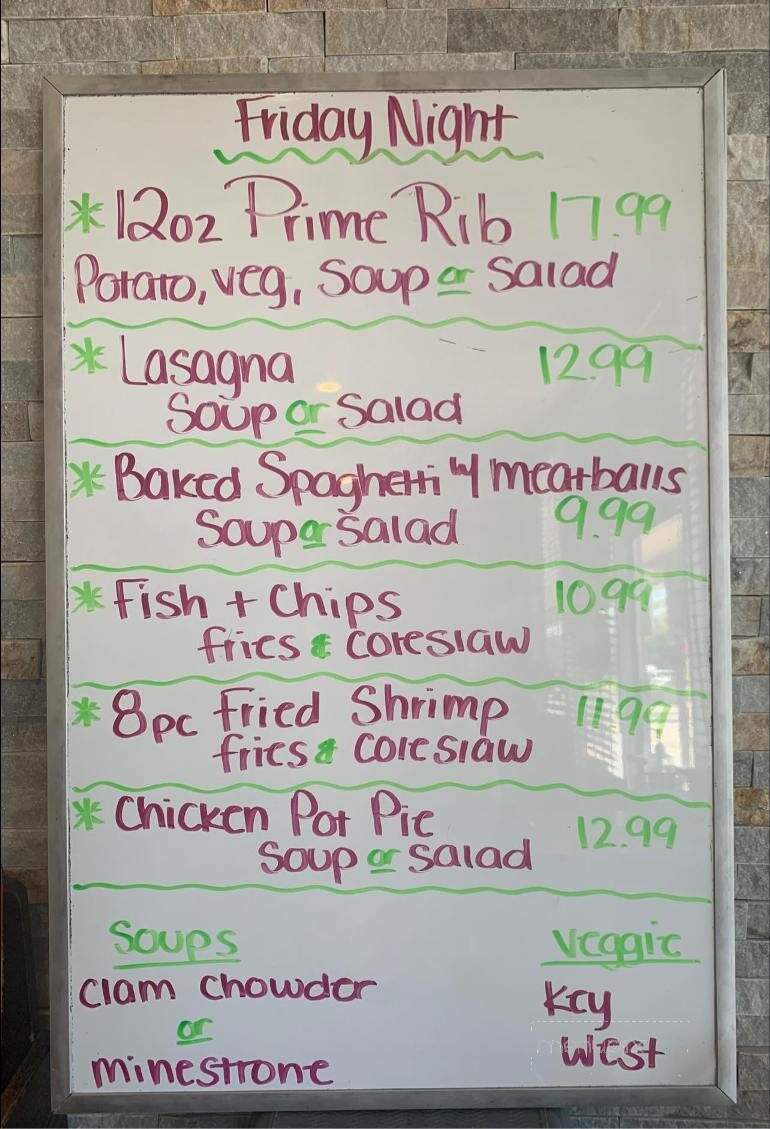 Friday Night
* 12oz Prime Rib 17.99
Potato, veg, Soup or Salad
* Lasagna 12.99
Soup or Salad
* Baked Spaghetti w/ meatballs
9.99
Soup or Salad
* Fish + Chips 10.99
fries & coleslaw
* 8pc Fried Shrimp 11.99
fries & coleslaw
* Chicken Pot Pie 12.99
Soup or Salad
Soups
Clam Chowder
or
minestrone
Veggie
Key
West